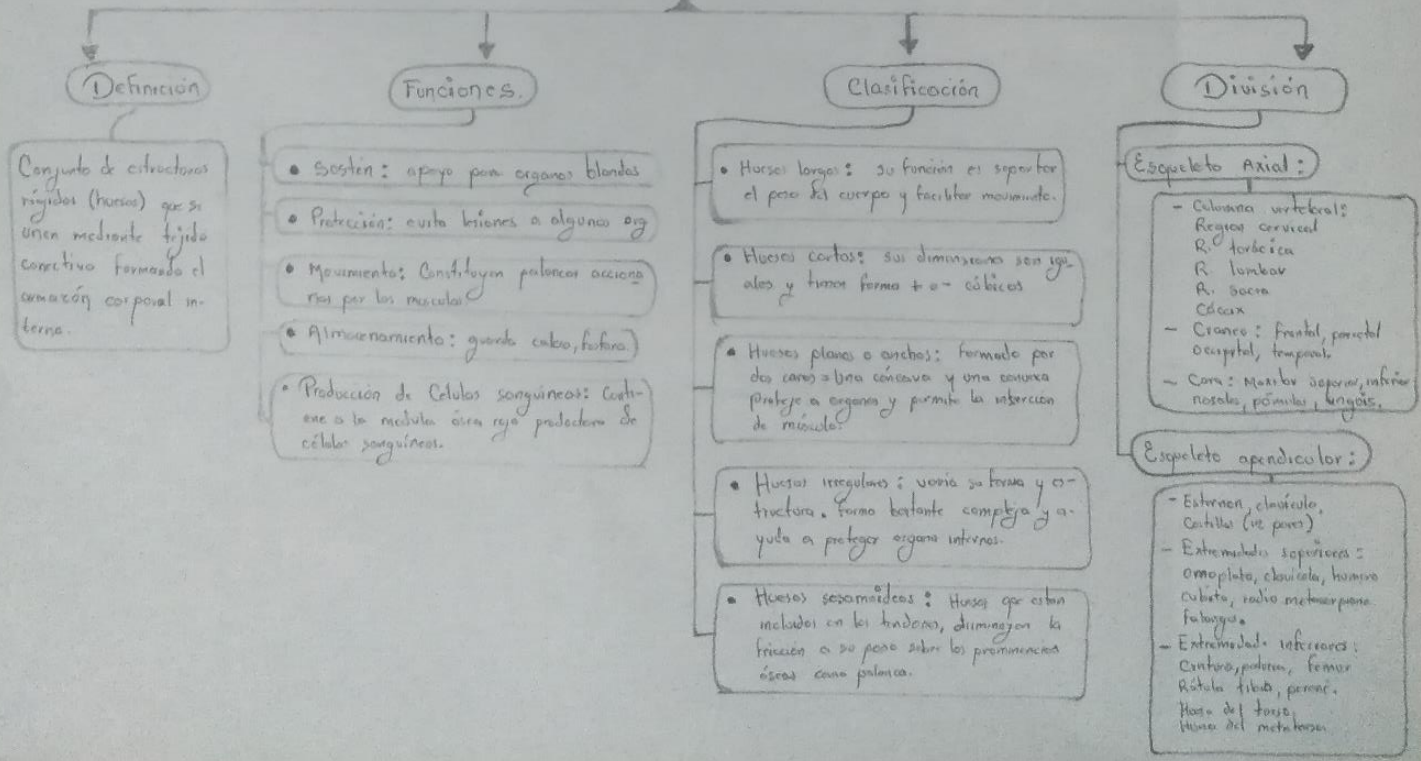 Definición
Conjunto de estructuras
rígidas (huesos) que se
unen mediante tejido
conectivo formando el
armazón corporal in-
terno.
Funciones.
• Sostén: apoyo para organos blandos
• Protección: evita lesiones a algunos org
• Movimiento: Constituyen palancas acciona
rias por los musculos
• Almacenamiento: guarda calcio, fosforo
• Producción de Celulas sanguineas: Conti-
ene a la medula ósea roja productora de
células sanguíneas.
Clasificación
• Huesos largos: su función es soportar
el peso del cuerpo y facilitar movimiento.
• Huesos cortos: sus dimensiones son igu-
ales y tienen forma + o - cúbicos
• Huesos planos o anchos: Formado por
dos caras = Una cóncava y una convexa
proteje a organos y permite la inserción
de músculo.
• Huesos irregulares: varia su forma y es-
tructura. Forma bastante compleja y a-
yuda a proteger organos internos.
• Huesos sesamoideos: Huesos que estan
incluidos en los tendones, disminuyen la
fricción a su paso sobre las prominencias
óseas como palanca.
División
Esqueleto Axial:
- Columna vertebral:
Region cervical
R. torácica
R. lumbar
R. sacra
Cóccix
- Craneo: Frontal, parietal
Occipital, temporal.
- Cara: Maxilar superior, inferior
nasales, pómulos, unguis.
Esqueleto apendicular:
- Esternon, clavicula,
Costillas (12 pares)
- Extremidades superiores:
omoplato, clavicula, humero
cubito, radio metacarpiano
falanges.
- Extremidades inferiores:
Cintura, femur
Rótula tibia, peroné.
Hueso del tarso
Hueso del metatarso